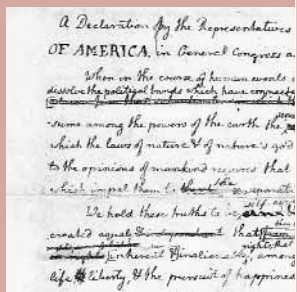 A Declaration by the Representatives
OF AMERICA, in General Congress a
When in the course of human events
dissolve the political bands which have connected
-sume among the powers of the earth the
which the laws of nature & of nature's god
to the opinions of mankind requires that
which impel them to the separation
We hold these truths to be
self-evi
created equal that
inherent & inalienable, among
life & liberty, & the pursuit of happiness